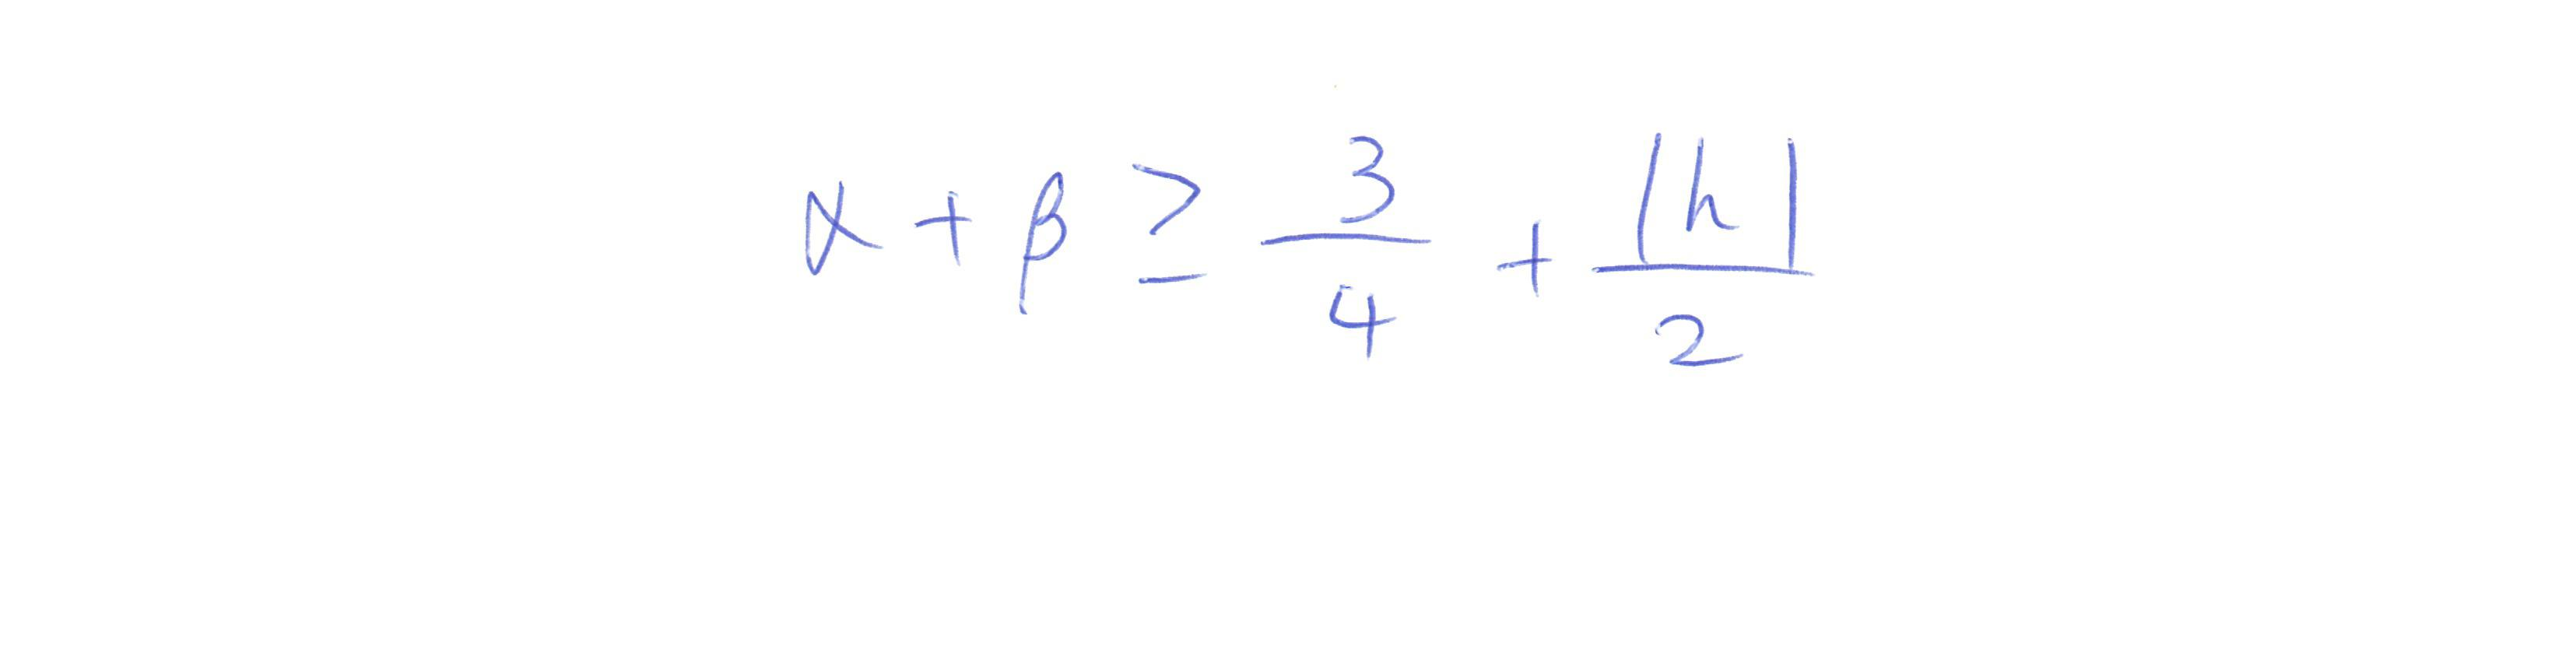 α + β ≥ 3/4 + |h|/2